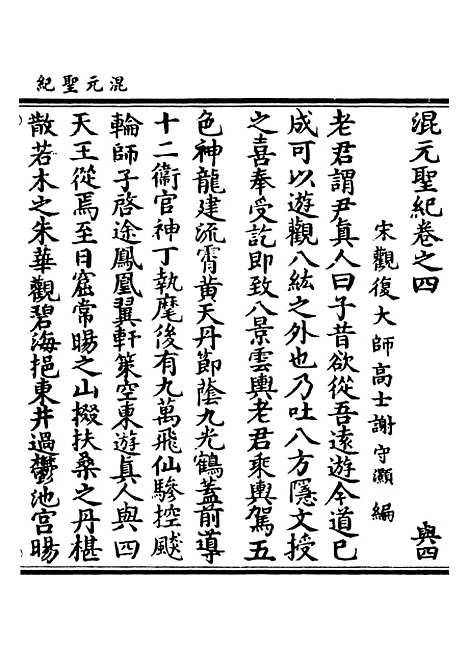 混元聖紀
混元聖紀卷之四
與四
宋觀復大師高士謝守灝編
老君謂尹真人曰子昔欲從吾遠遊今道已
成可以遊觀八紘之外也乃吐八方隱文授
之喜奉受訖即致八景雲輿老君乘輿駕五
色神龍建流霄黄天丹節蔭九光鶴蓋前導
十二衞官神丁執麾後有九萬飛仙驂控飈
輪師子啓途鳳凰翼軒策空東遊真人與四
天王從焉至日窟常暘之山掇扶桑之丹椹
散若木之朱華觀碧海挹東井過鬱池宮暘